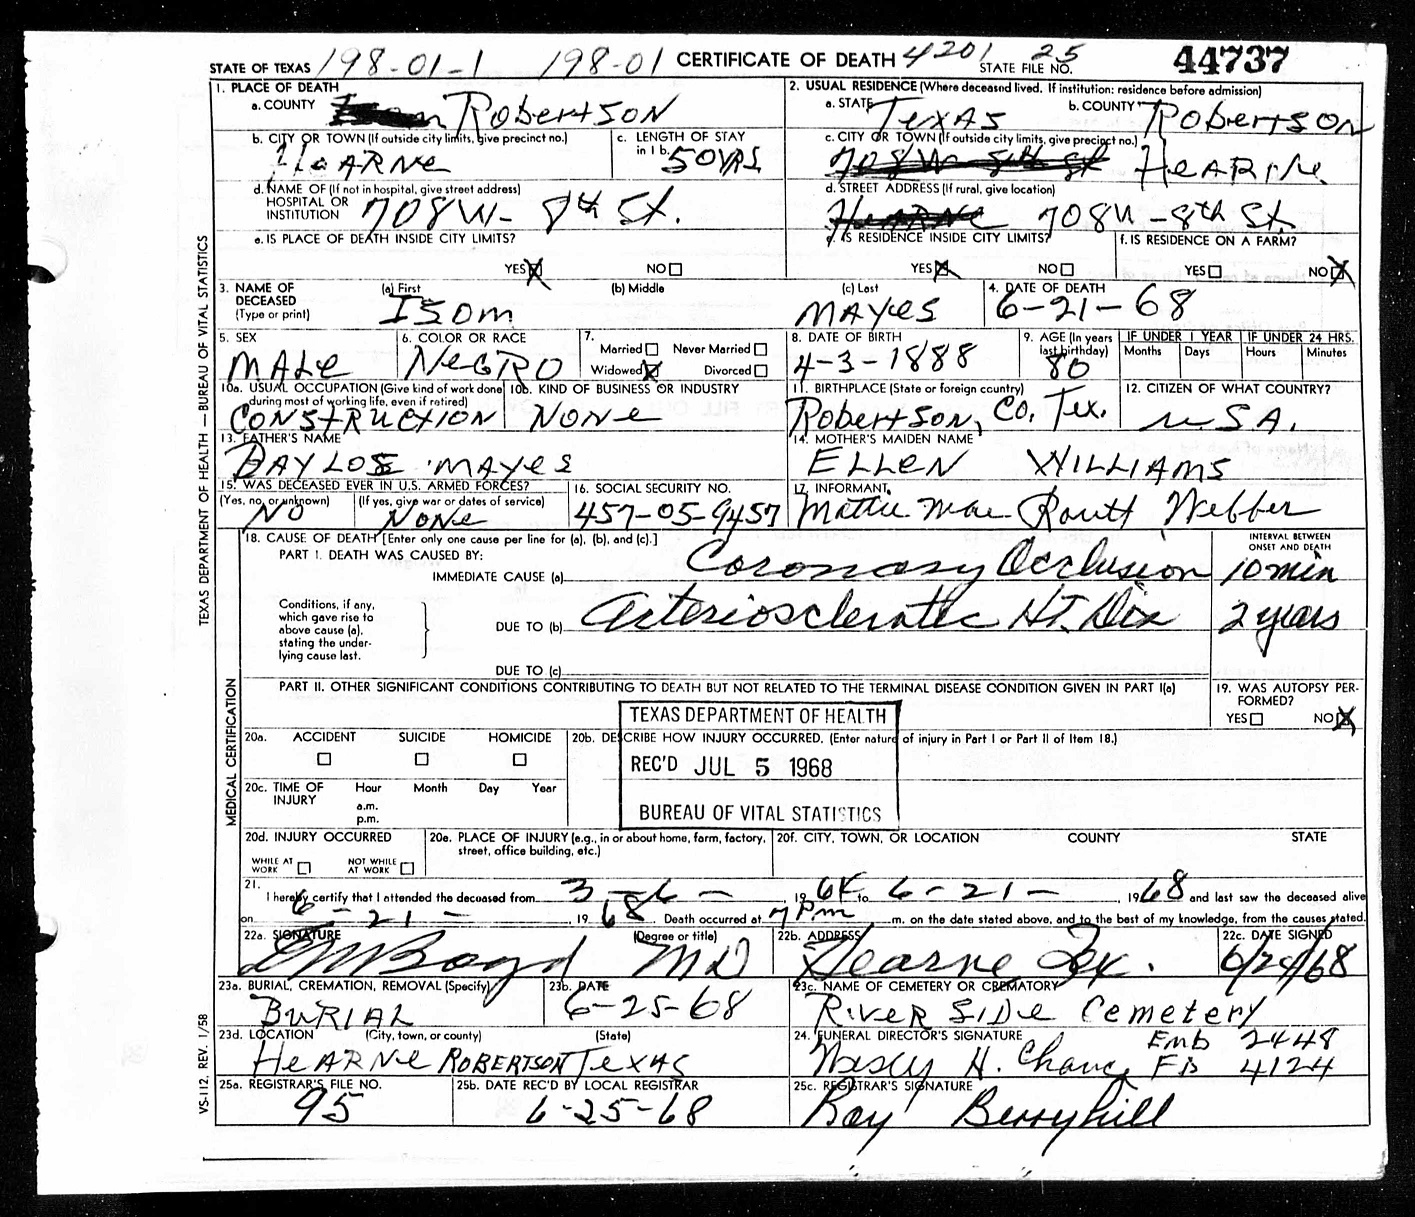 STATE OF TEXAS 198-01-1 198-01 CERTIFICATE OF DEATH 4201 25 STATE FILE NO. 44737
1. PLACE OF DEATH
a. COUNTY Robertson
2. USUAL RESIDENCE (Where deceased lived. If institution: residence before admission)
a. STATE Texas b. COUNTY Robertson
b. CITY OR TOWN (If outside city limits, give precinct no.) Hearne
c. LENGTH OF STAY in 1 b. 50 YRS
c. CITY OR TOWN (If outside city limits, give precinct no.) 708 W 8th St Hearne
d. NAME OF (If not in hospital, give street address) HOSPITAL OR INSTITUTION 708 W- 8th St.
d. STREET ADDRESS (If rural, give location) Hearne 708 W-8th St.
e. IS PLACE OF DEATH INSIDE CITY LIMITS?
YES☒ NO☐
e. IS RESIDENCE INSIDE CITY LIMITS?
YES☒ NO☐
f. IS RESIDENCE ON A FARM?
YES☐ NO☒
3. NAME OF DECEASED (Type or print)
(a) First Isom
(b) Middle
(c) Last Mayes
4. DATE OF DEATH 6-21-68
5. SEX MALE
6. COLOR OR RACE NEGRO
7. Married☐ Never Married☐
Widowed☒ Divorced☐
8. DATE OF BIRTH 4-3-1888
9. AGE (In years last birthday) 80
IF UNDER 1 YEAR Months Days
IF UNDER 24 HRS. Hours Minutes
10a. USUAL OCCUPATION (Give kind of work done during most of working life, even if retired) CONSTRUCTION
10b. KIND OF BUSINESS OR INDUSTRY NONe
11. BIRTHPLACE (State or foreign country) Robertson, Co, Tex.
12. CITIZEN OF WHAT COUNTRY? USA.
13. FATHER'S NAME BAYLOR MAYES
14. MOTHER'S MAIDEN NAME ELLEN WILLIAMS
15. WAS DECEASED EVER IN U.S. ARMED FORCES?
(Yes, no, or unknown) NO
(If yes, give war or dates of service) NONe
16. SOCIAL SECURITY NO. 457-05-9457
17. INFORMANT Mattie Mae Routt Webber
18. CAUSE OF DEATH [Enter only one cause per line for (a), (b), and (c).]
INTERVAL BETWEEN ONSET AND DEATH
PART I. DEATH WAS CAUSED BY:
IMMEDIATE CAUSE (a) Coronary Occlusion 10 min
Conditions, if any, which gave rise to above cause (a), stating the underlying cause last.
DUE TO (b) Arteriosclerotic Ht. Dix 2 years
DUE TO (c)
PART II. OTHER SIGNIFICANT CONDITIONS CONTRIBUTING TO DEATH BUT NOT RELATED TO THE TERMINAL DISEASE CONDITION GIVEN IN PART I(a)
19. WAS AUTOPSY PERFORMED?
YES☐ NO☒
TEXAS DEPARTMENT OF HEALTH
REC'D JUL 5 1968
BUREAU OF VITAL STATISTICS
20a. ACCIDENT SUICIDE HOMICIDE
☐ ☐ ☐
20b. DESCRIBE HOW INJURY OCCURRED. (Enter nature of injury in Part I or Part II of Item 18.)
20c. TIME OF INJURY Hour Month Day Year
a.m.
p.m.
20d. INJURY OCCURRED
WHILE AT WORK ☐ NOT WHILE AT WORK ☐
20e. PLACE OF INJURY (e.g., in or about home, farm, factory, street, office building, etc.)
20f. CITY, TOWN, OR LOCATION COUNTY STATE
21. I hereby certify that I attended the deceased from 3-6- 1964 to 6-21- 1968 and last saw the deceased alive
on 6-21- 1968. Death occurred at 7 Pm m. on the date stated above, and to the best of my knowledge, from the causes stated.
22a. SIGNATURE Boyd (Degree or title) MD
22b. ADDRESS Hearne Tex.
22c. DATE SIGNED 6/24/68
23a. BURIAL, CREMATION, REMOVAL (Specify) BURIAL
23b. DATE 6-25-68
23c. NAME OF CEMETERY OR CREMATORY RIVER SIDE Cemetery
23d. LOCATION (City, town, or county) (State) HeARNe ROBERTSON TEXAS
24. FUNERAL DIRECTOR'S SIGNATURE H. Emb 2448
4124
25a. REGISTRAR'S FILE NO. 95
25b. DATE REC'D BY LOCAL REGISTRAR 6-25-68
25c. REGISTRAR'S SIGNATURE Ray Berryhill
TEXAS DEPARTMENT OF HEALTH — BUREAU OF VITAL STATISTICS
MEDICAL CERTIFICATION
VS-112. REV. 1/58